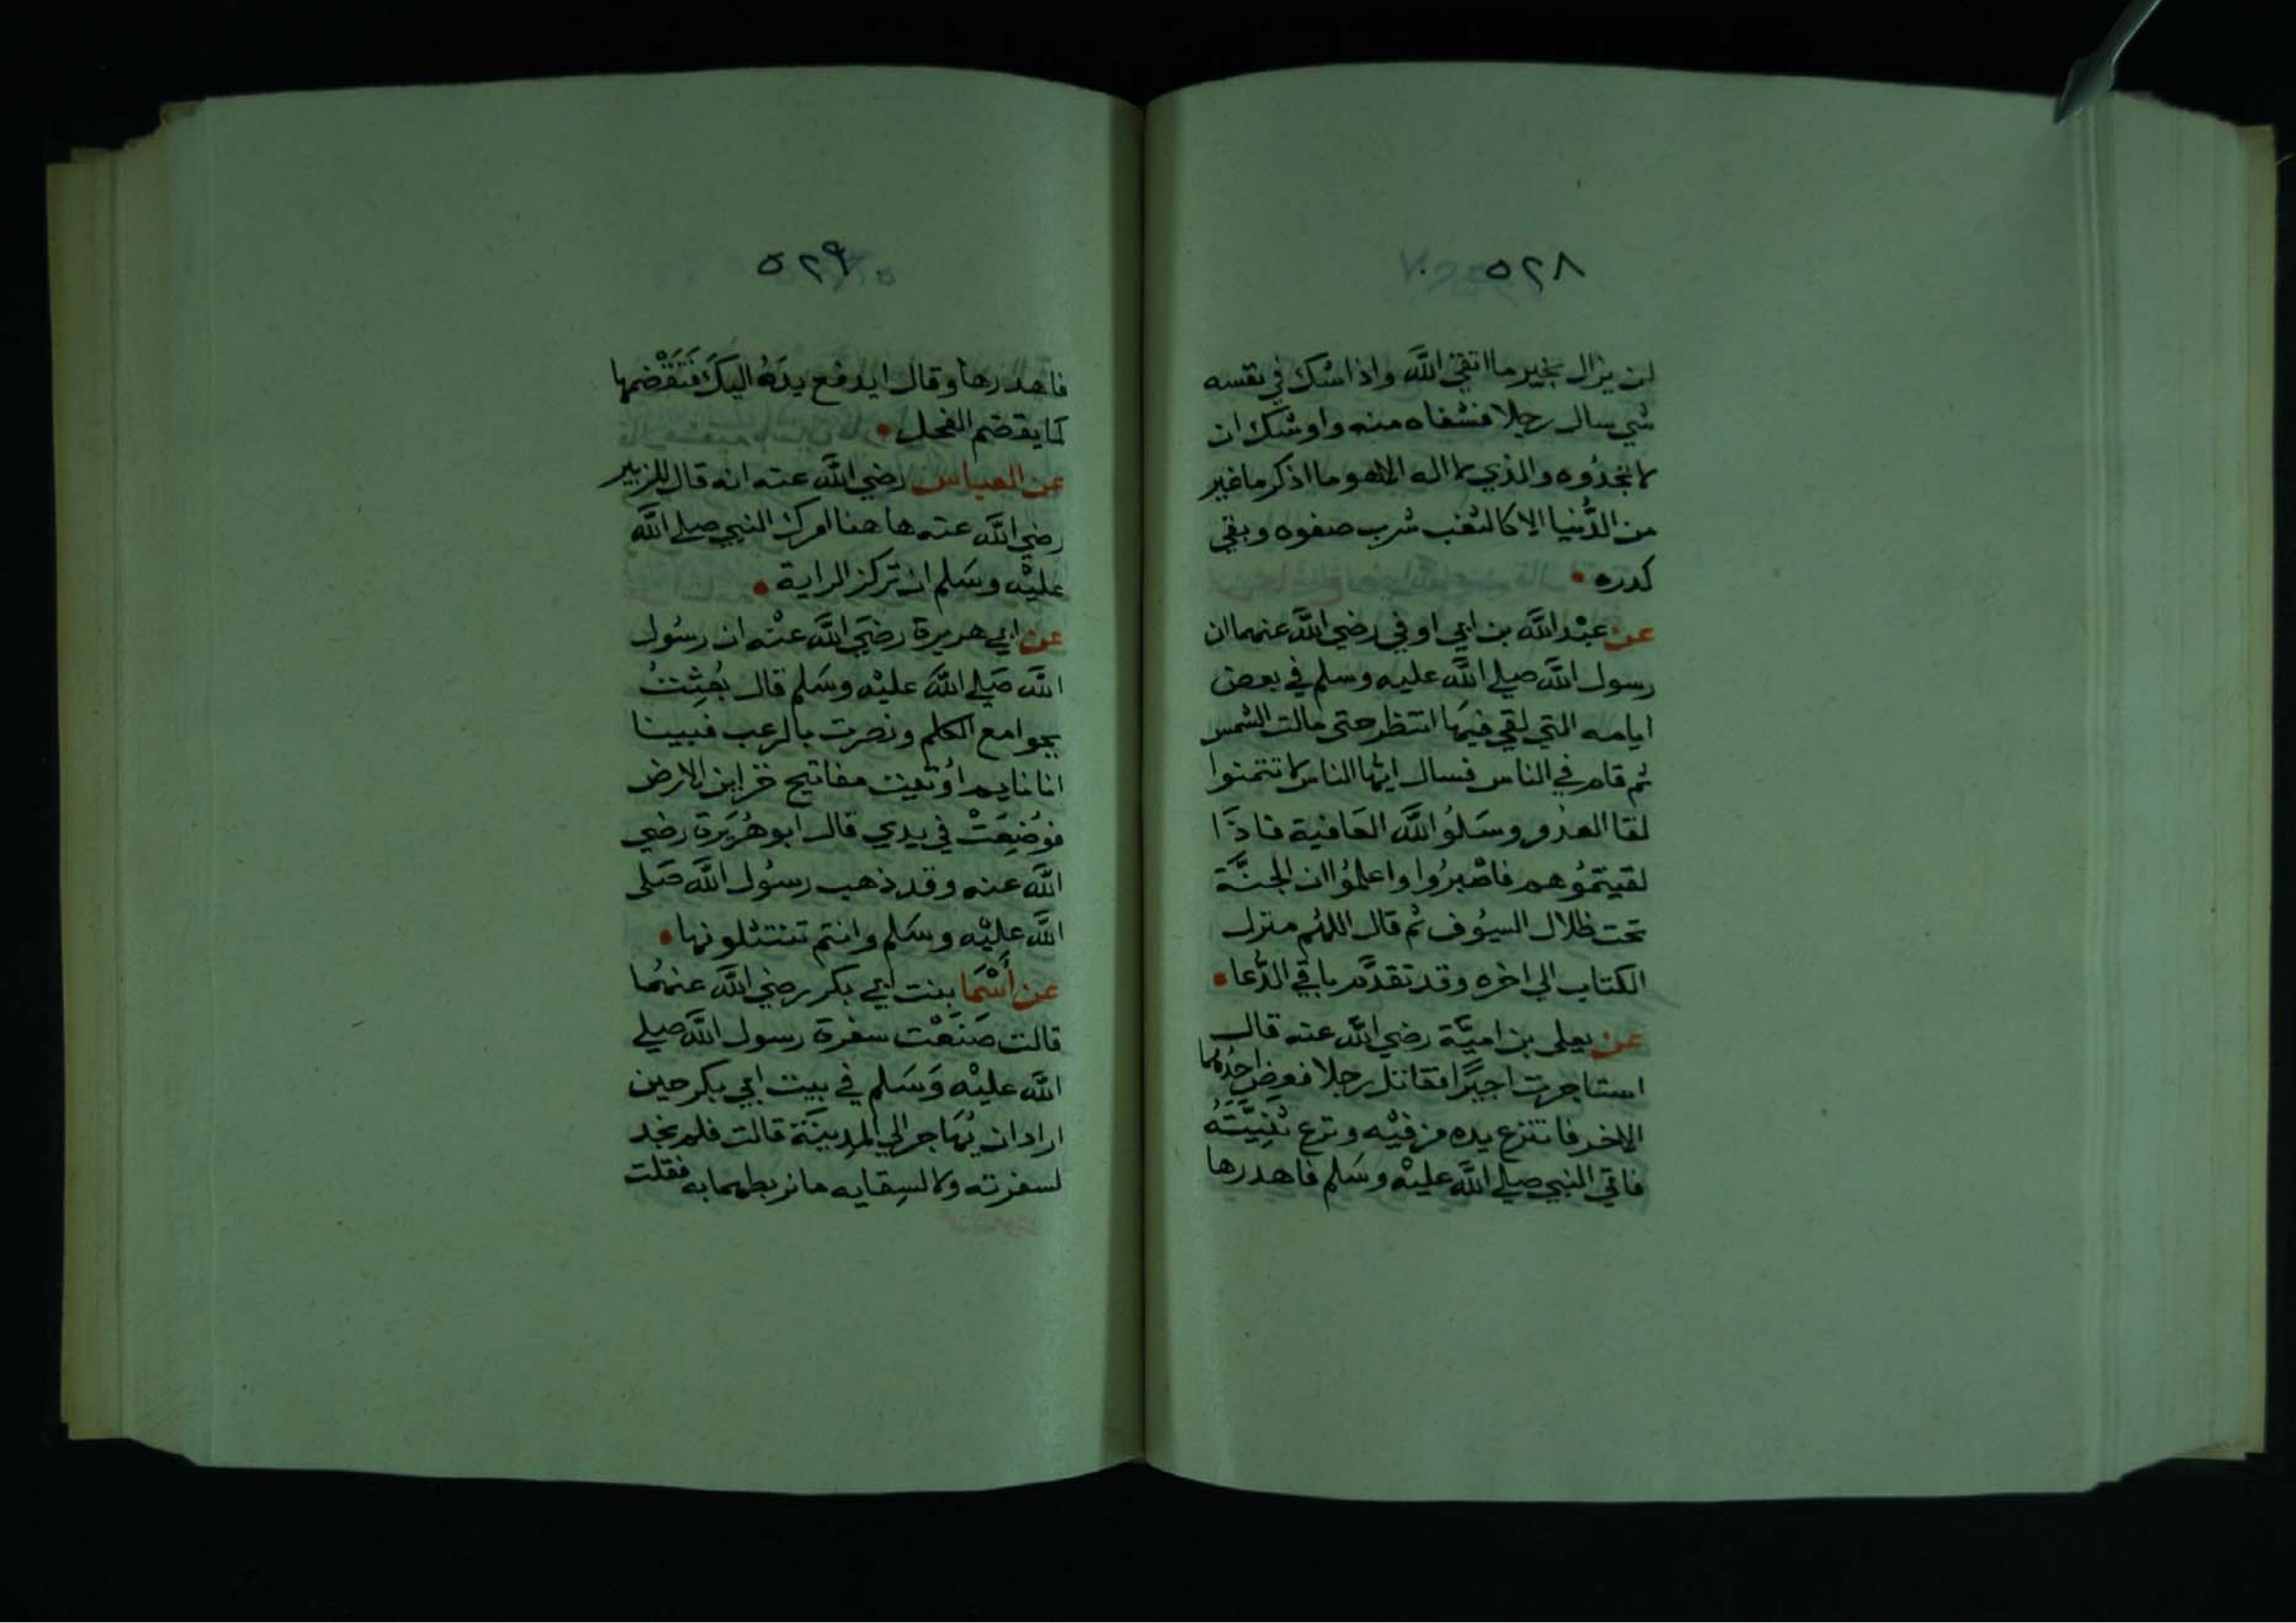 ٥٢٨
لن يزال بخير ما اتقي الله واذا شك في نفسه
شي سال رجلا فشفاه منه واوشك ان
لا تجدوه والذي لا اله الا هو ما اذكر ما غبر
من الدُّنيا الا كالثغب شرب صفوه وبقي
كدره
عن عبْد الله بن ابي اوفي رضي الله عنهما ان
رسول الله صلي الله عليه وسلم في بعض
ايامه التي لقي فيهَا انتظر حتى مالت الشمس
ثم قام في الناس فسال ايها الناس لا تتمنوا
لقا العدو وسَلوُا الله العَافية فاذَا
لقيتموُهم فاصْبرُوا واعلموُا ان الجنَّة
تحت ظلال السيُوف ثم قال اللهُم منزل
الكتاب الي اخره وقد تقدَّم باقي الدُّعا
عن يعلي بن اميَّة رضي الله عنه قال
استاجرت اجيرًا فقاتل رجلا فعض احدُهما
الاخر فانتزع يده من فيْه ونزع ثَنِيَّتَهُ
فاتي النبي صلي الله عليْه وسَلم فاهدرها
٥٢٩
فاهدرها وقال ايدفع يدَهُ اليكَ فتَقْضمها
كما يقضم الفحل
عن العباس رضي الله عنه انه قال للزبير
رضي الله عنه ها هنا امرك النبي صلي الله
عليْه وسَلم ان تركز الراية
عن ابي هريرة رضيَ الله عنْه ان رسُول
الله صَلي اللهُ عليْه وسَلم قال بُعِثتُ
بجوامع الكلم ونصرت بالرعب فبينا
انا نايم اُوتيت مفاتيح خزاين الارض
فوُضِعَتْ في يدي قال ابو هُرَيرة رضي
الله عنه وقد ذهب رسُول الله صَلى
الله عليْه وسَلم وانتم تنتثلونها
عن أَسْمَا بنت ابي بكر رضي الله عنهُما
قالت صَنَعْت سفرة رسول الله صلي
الله عليْه وَسَلم في بيت ابي بكر حين
اراد ان يُهَاجر الي المدينَة قالت فلم نجد
لسفرته ولا لسِقايه ما نربطهما به فقلت